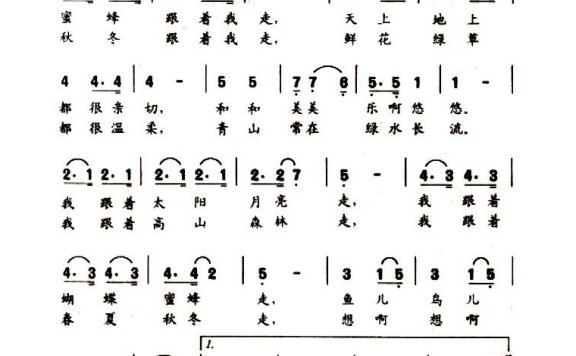 蜜 蜂 跟着我走, 天上 地上
秋 冬 跟着我走, 鲜花 绿草
4 4·4 | 4 - | 5 5 | 7 7 6 | 5·5 1 | 1 - |
都 很亲 切, 和 和 美美 乐啊悠 悠。
都 很温 柔, 青 山 常在 绿水长 流。
2·1 2·1 | 2·1 2·1 | 2·2 2 7 | 5 - | 4·3 4·3 |
我 跟着 太 阳 月亮 走, 我 跟着
我 跟着 高 山 森林 走, 我 跟着
4·3 4·3 | 4·4 2 | 5 - | 3 1 5 | 3 1 5 |
蝴 蝶 蜜蜂 走, 鱼 儿 鸟 儿
春 夏 秋冬 走, 想 啊 想 啊
1.